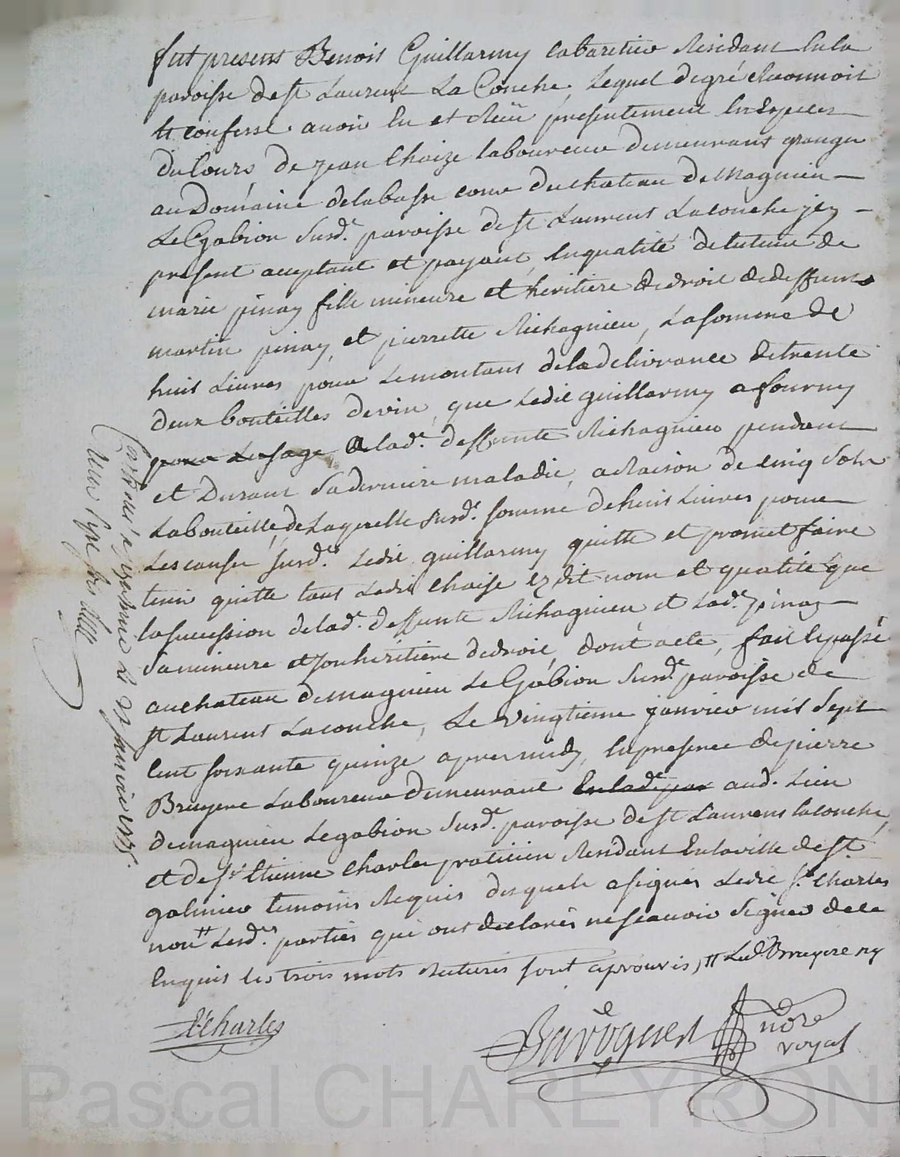 fut present Benois Guillarmy cabaretier Residant En la
paroisse de st Laurent La Conche, Lequel de gré Reconnoit
et confesse avoir Eu et Reçu presentement En Especes
du Cours de jean Chaize laboureur demeurant granger
au Domaine de la basse cour du chateau de Magnieu
Le Gabion Susd. paroisse de st Laurent Laconche jcy
present aceptant et payant En qualité de tuteur de
marie pinay fille mineure et heritiere de droit de deffunts
martin pinay, et pierrette Richagnieu, La somme de
huit Livres pour Le montant de la delivrance de trente
deux bouteilles de vin, que Ledit guillarmy a fourny
pour Lusage A lad. deffunte Richagnieu pendant
et Durant Sa derniere maladie, a Raison de cinq Sols
La bouteille, de Laquelle Susd. somme de huit Livres pour
Les causes susd. Ledit guillarmy quitte et promet faire
tenir quitte tant Ledit Chaize Esdit nom et qualité que
la succession de lad. deffunte Richagnieu et Lad. pinay
Sa mineure et son heritiere de droit, dont acte, fait Et passé
au chateau de magnieu Le Gabion Susd. paroisse de
st Laurent Laconche, Le vingtieme janvier mil sept
Cent soixante quinze apres midy, En presence de pierre
Bruyere Laboureur demeurant En lad. par aud. Lieu
de magnieu Le gabion Susd. paroisse de st Laurens laconche,
et de sr Etienne Charles praticien Residant En la ville de st
galmier temoins Requis desquels a signés Ledit sr Charles
non tt Lesd. parties qui ont declarés ne scavoir Signer de ce
Enquis les trois mots Raturés sont aprouvés, tt Led. Bruyere ny
E Charles
notre
royal
Controlé
le 23 janvier 1775
Pascal CHAREYRON